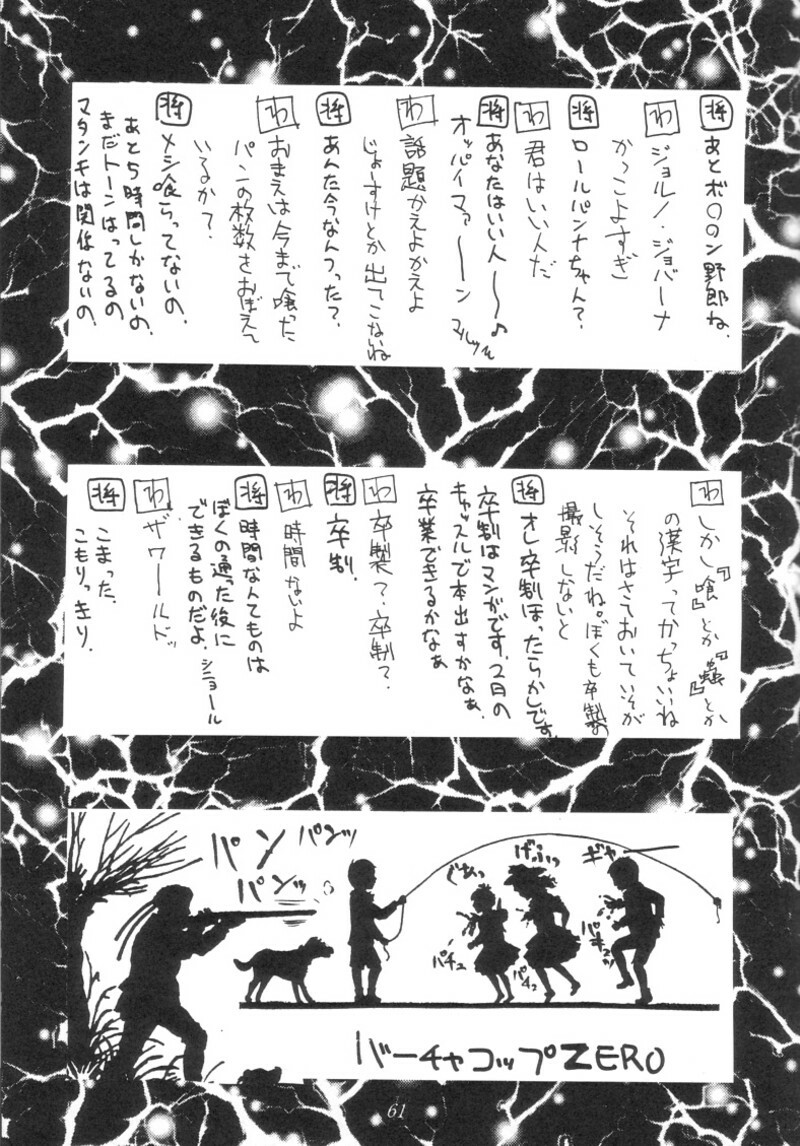 将 あとボ○○ン野郎ね.
わ ジョルノ・ジョバーナ
かっこよすぎ
将 ロールパンナちゃん?
わ 君はいい人だ
将 あなたはいい人〜〜♪
オッパイマァ〜〜ン
わ 話題かえよかえよ
じょーすけとか出てこないね
将 あんた今なんつった?
わ おまえは今まで喰った
パンの枚数をおぼえて
いるか?
将 メシ喰らってないの.
あと5時間しかないの.
まだトーンはってるの
マタンキは関係ないの.
わ しかし『喰』とか『蟲』とか
の漢字ってかっちょいいね
それはさておいていそが
しそうだね。ぼくも卒製の
撮影しないと
将 オレ卒制ほったらかしです.
卒制はマンガです.2日の
キャッスルで本出すかなぁ.
卒業できるかなぁ
わ 卒製?卒制?
将 卒制.
わ 時間ないよ
将 時間なんてものは
ぼくの通った後に
できるものだよ.シニョール
わ ザワールドッ
将 こまった.
こもりっきり.
パン パンッ
パンッ
ぐあっ
げふっ
ギャーー
パチュ
パチュ
パチュッ
バーチャコップZERO
61